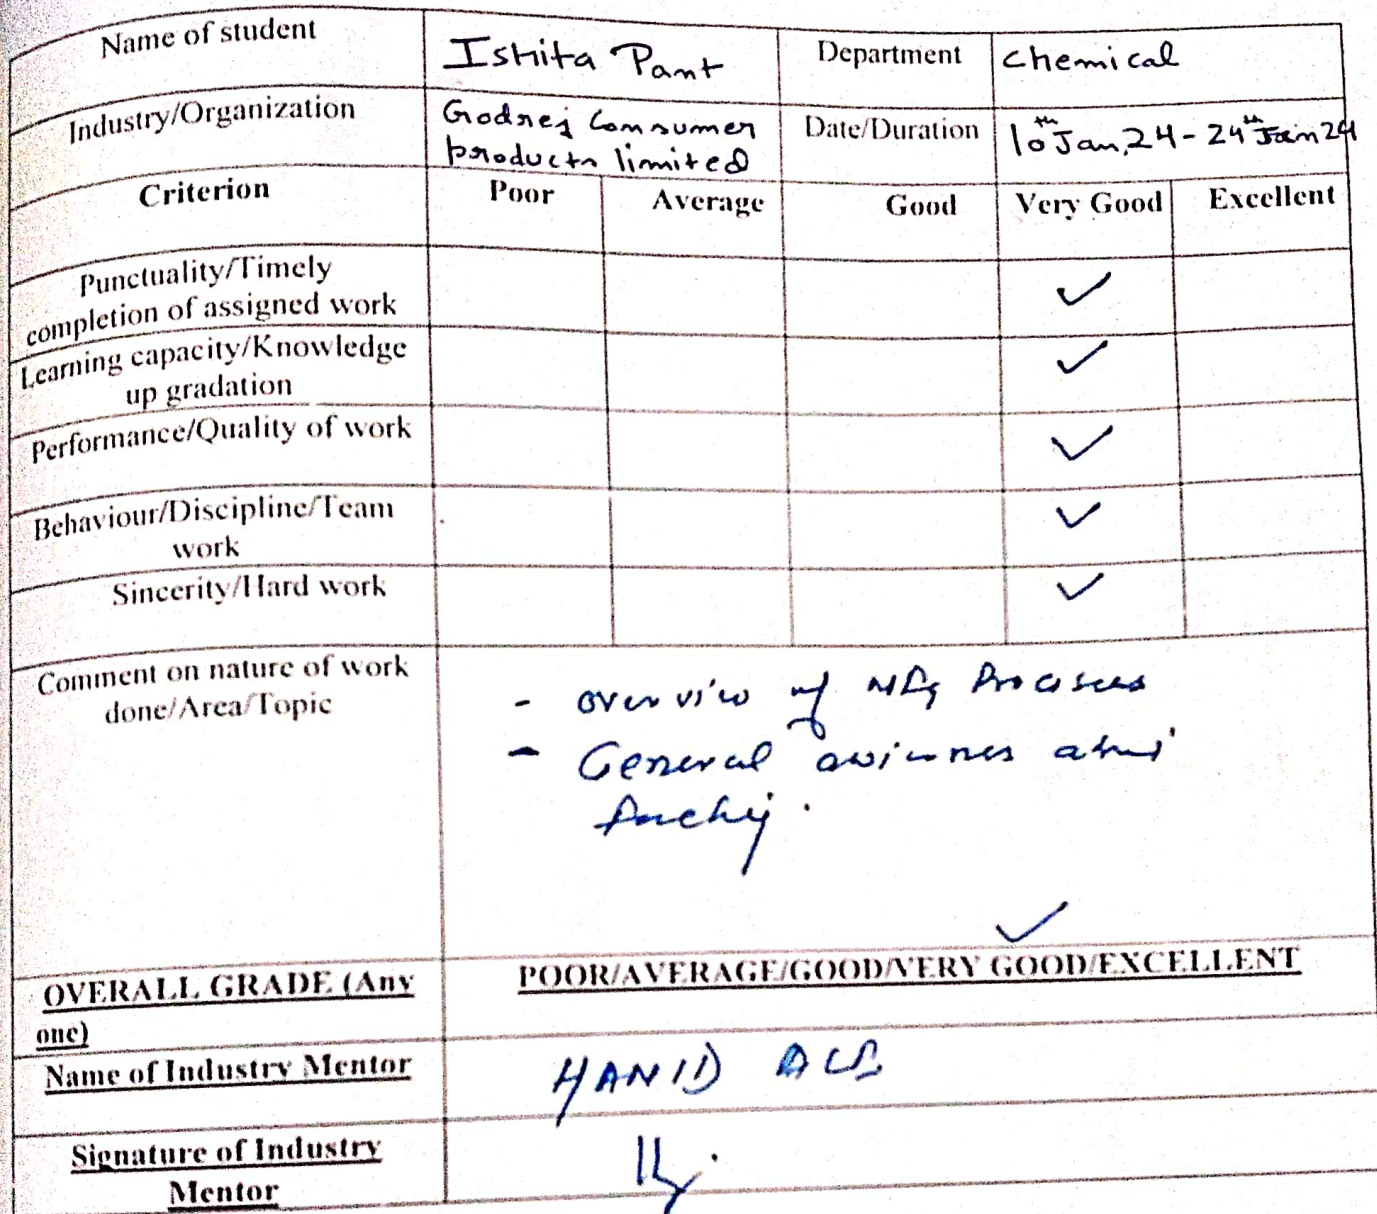 Name of student Ishita Pant Department Chemical
Industry/Organization Godrej Consumer Date/Duration 10th Jan,24-24th Jan 24
products limited
Criterion Poor Average Good Very Good Excellent
Punctuality/Timely
completion of assigned work ✓
Learning capacity/Knowledge ✓
up gradation
Performance/Quality of work ✓
Behaviour/Discipline/Team ✓
work
Sincerity/Hard work ✓
Comment on nature of work - overview of Mfg Processes
done/Area/Topic
- General about
✓
OVERALL GRADE (Any POOR/AVERAGE/GOOD/VERY GOOD/EXCELLENT
one)
Name of Industry Mentor
Signature of Industry
Mentor